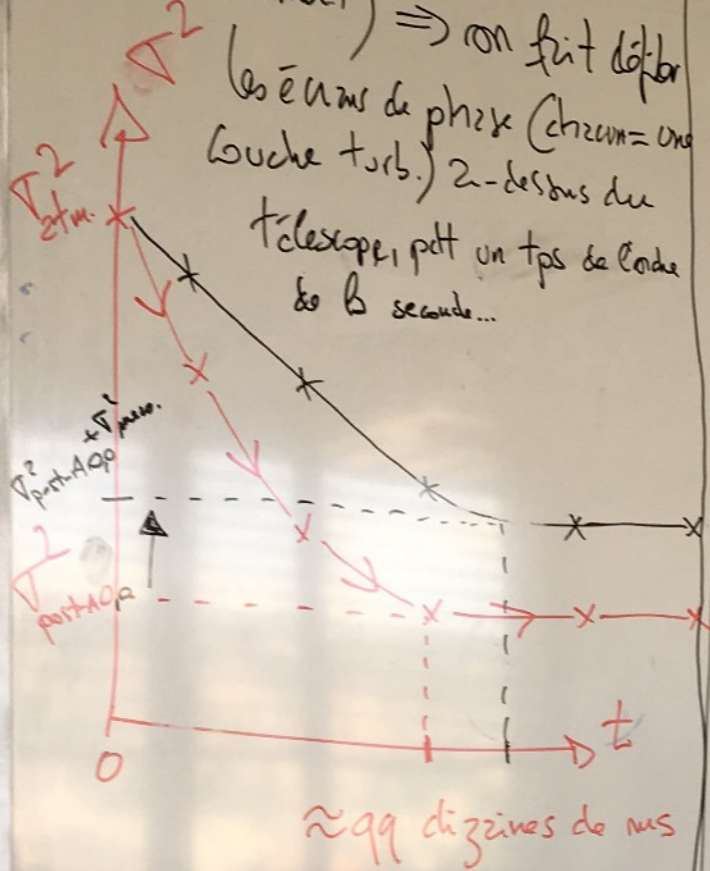 ) ⇒ on fait défiler
σ²
les écrans de phase (chacun = une
couche turb.) au-dessus du
σ²atm.
télescope, pdt un tps de l'ordre
de la seconde...
σ²post-AO,0 + σ²
σ²post-AO,0
t
0
≈ qq dizaines de ms